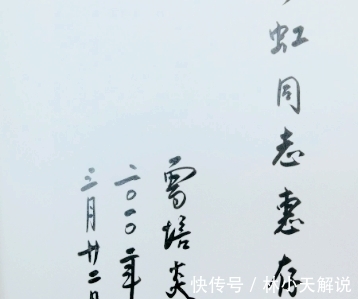 虹同志惠存
雷培炎
二〇一〇年
三月廿二日
快传号／林小天解说